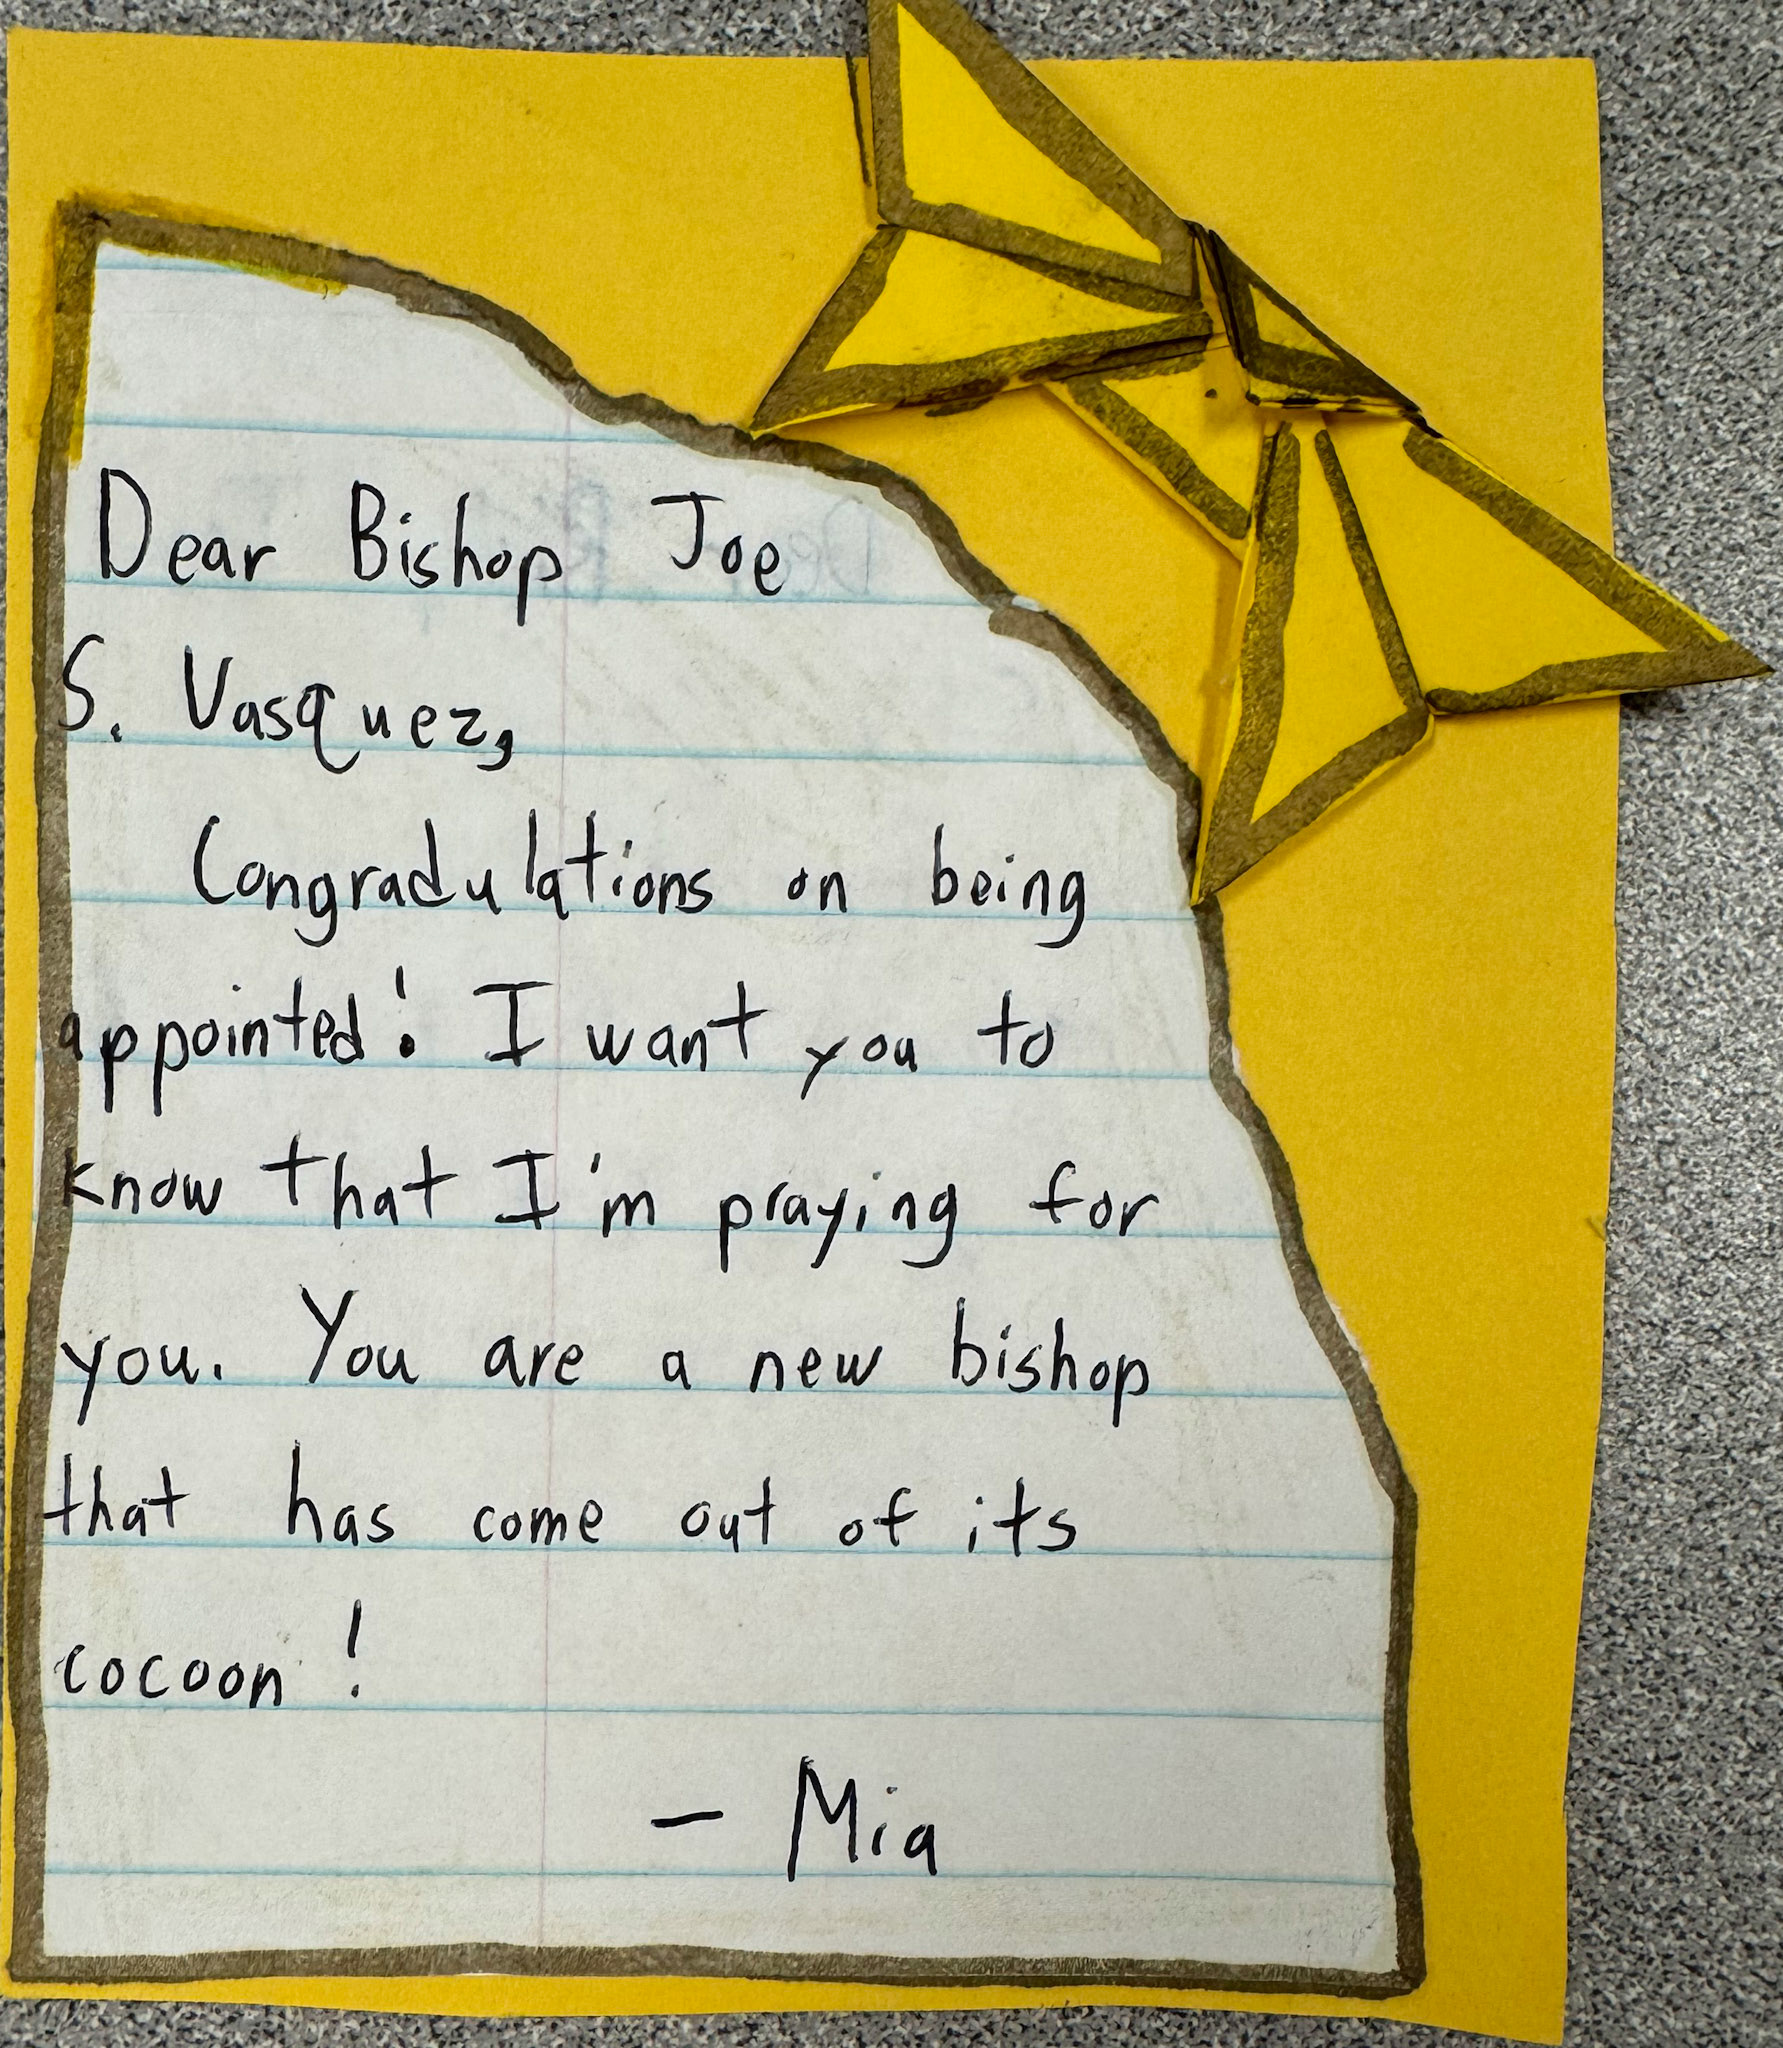 Dear Bishop Joe
S. Vasquez,
Congradulations on being
appointed! I want you to
know that I'm praying for
you. You are a new bishop
that has come out of its
cocoon!
– Mia